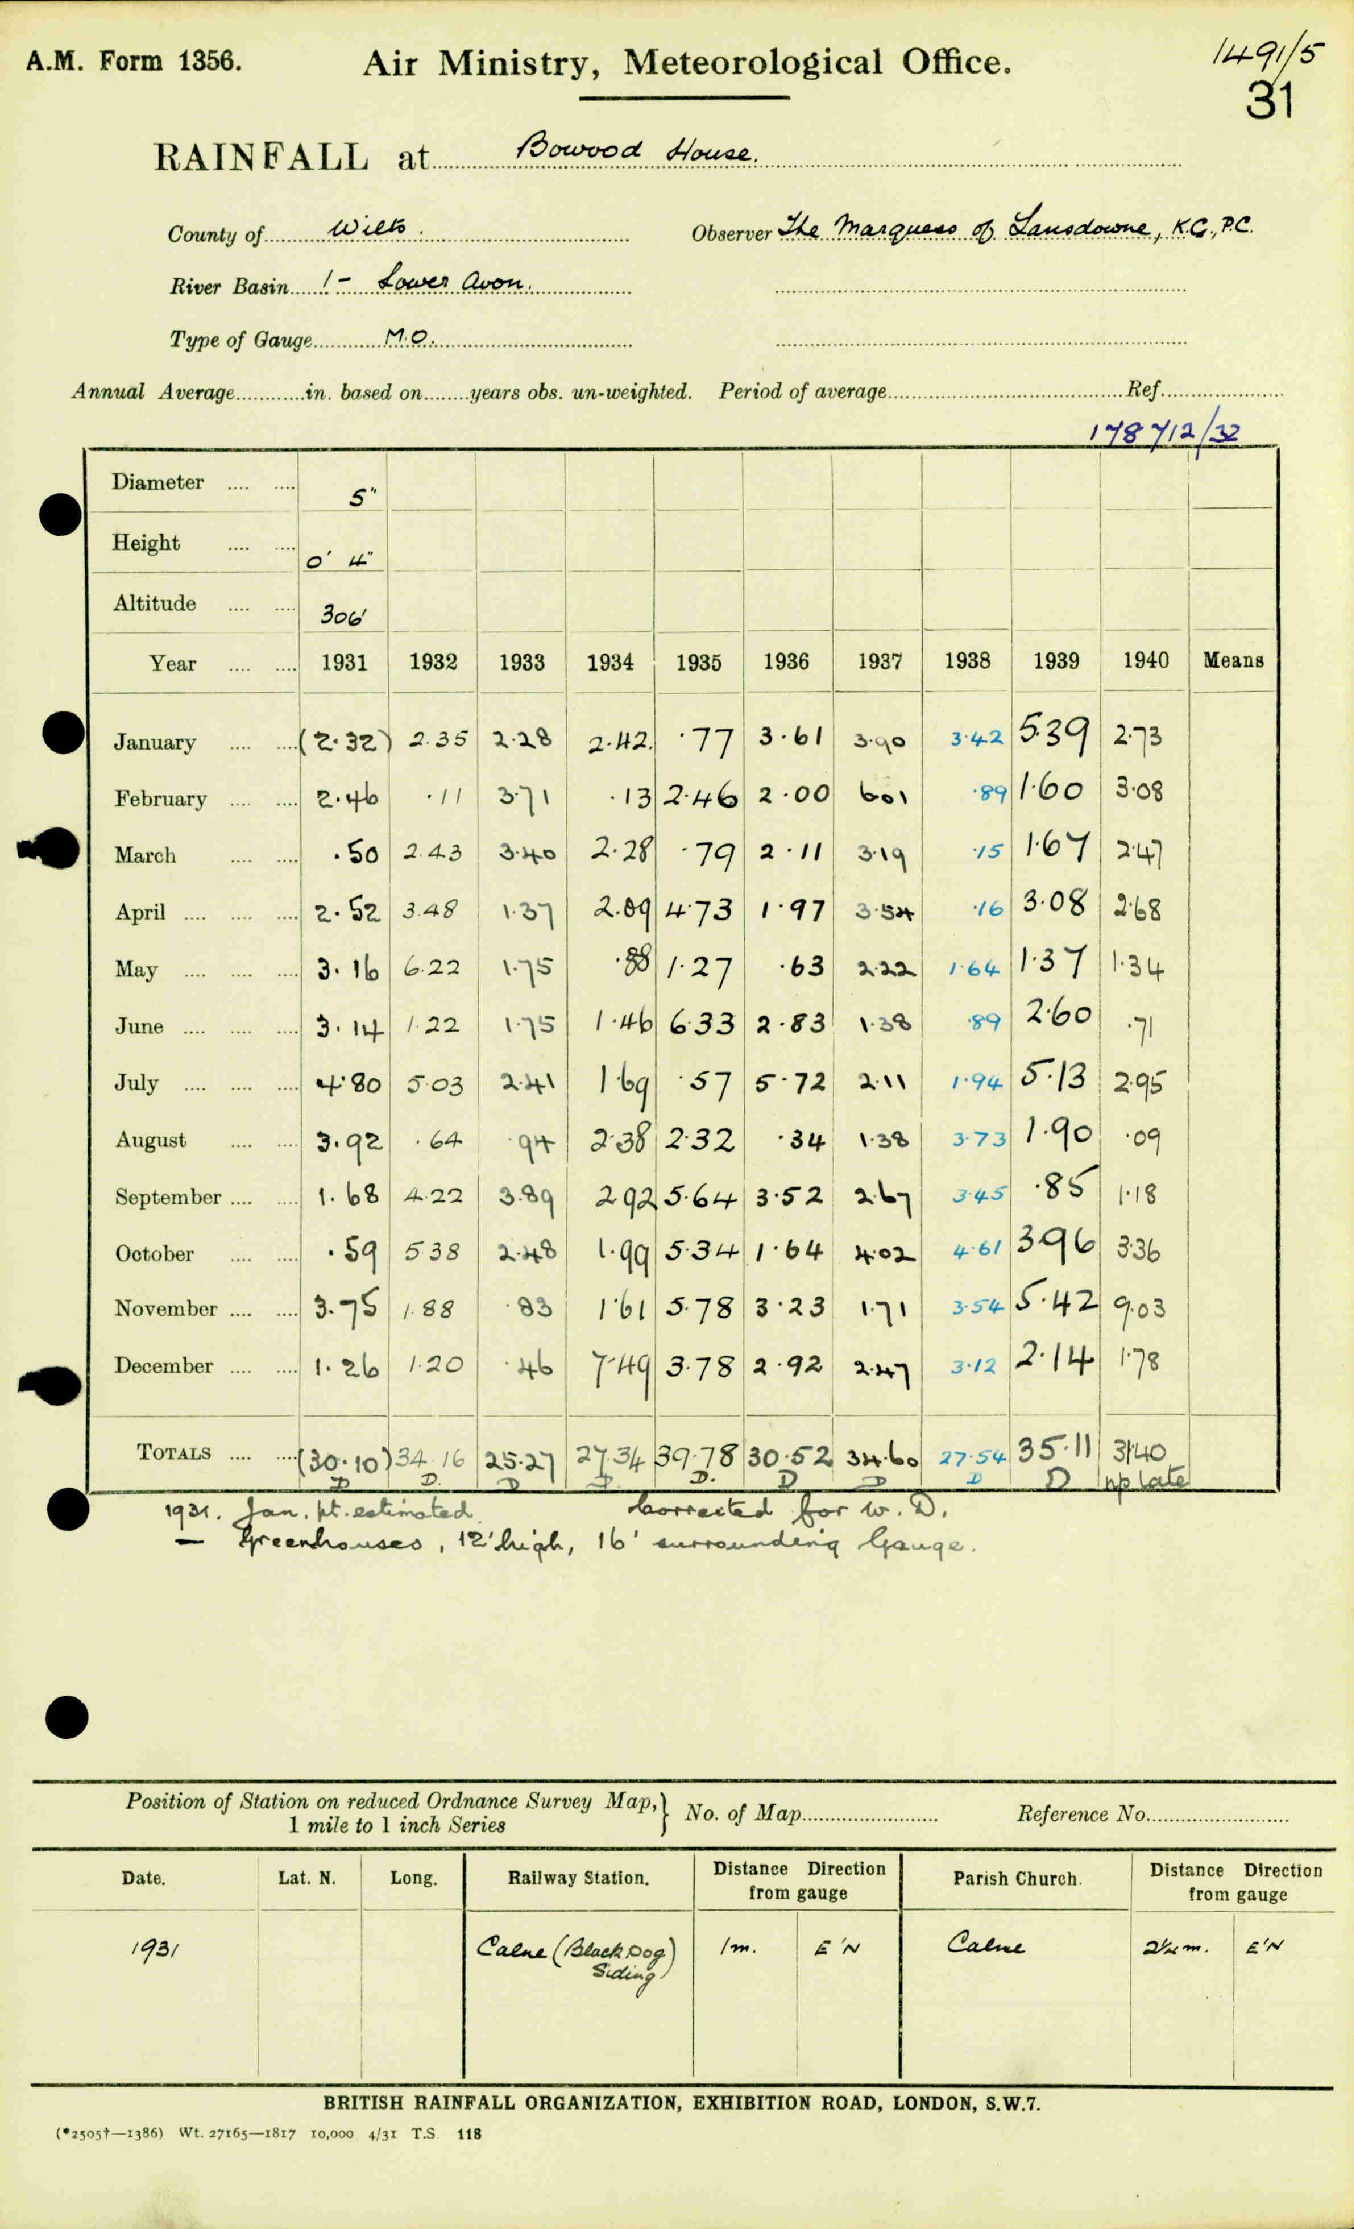 A.M. Form 1356. Air Ministry, Meteorological Office. 1491/5
31
RAINFALL at Bowood House.
County of Wilts. Observer The Marquess of Lansdowne, K.G., P.C.
River Basin 1 - Lower Avon.
Type of Gauge M.O.
Annual Average in. based on years obs. un-weighted. Period of average Ref.
178712/32
Diameter 5"
Height 0' 4"
Altitude 306'
Year 1931 1932 1933 1934 1935 1936 1937 1938 1939 1940 Means
January (2.32) 2.35 2.28 2.42. .77 3.61 3.90 3.42 5.39 2.73
February 2.46 .11 3.71 .13 2.46 2.00 6.01 .89 1.60 3.08
March .50 2.43 3.40 2.28 .79 2.11 3.19 .15 1.67 2.47
April 2.52 3.48 1.37 2.09 4.73 1.97 3.54 .16 3.08 2.68
May 3.16 6.22 1.75 .88 1.27 .63 2.22 1.64 1.37 1.34
June 3.14 1.22 1.75 1.46 6.33 2.83 1.38 .89 2.60 .71
July 4.80 5.03 2.41 1.69 .57 5.72 2.11 1.94 5.13 2.95
August 3.92 .64 .94 2.38 2.32 .34 1.38 3.73 1.90 .09
September 1.68 4.22 3.89 2.92 5.64 3.52 2.67 3.45 .85 1.18
October .59 5.38 2.48 1.99 5.34 1.64 4.02 4.61 3.96 3.36
November 3.75 1.88 .83 1.61 5.78 3.23 1.71 3.54 5.42 9.03
December 1.26 1.20 .46 7.49 3.78 2.92 2.47 3.12 2.14 1.78
TOTALS (30.10) 34.16 25.27 27.34 39.78 30.52 34.60 27.54 35.11 31.40
D D. D D. D. D D D D np late
1931. Jan. pt. estimated. Corrected for w. D.
— Greenhouses, 12' high, 16' surrounding Gauge.
Position of Station on reduced Ordnance Survey Map, } No. of Map Reference No.
1 mile to 1 inch Series
Date. Lat. N. Long. Railway Station. Distance Direction from gauge Parish Church. Distance Direction from gauge
1931 Calne (Black Dog Siding) 1m. E'N Calne 2¼m. E'N
BRITISH RAINFALL ORGANIZATION, EXHIBITION ROAD, LONDON, S.W.7.
(*2505†—1386) Wt. 27165—1817 10,000 4/31 T.S. 118